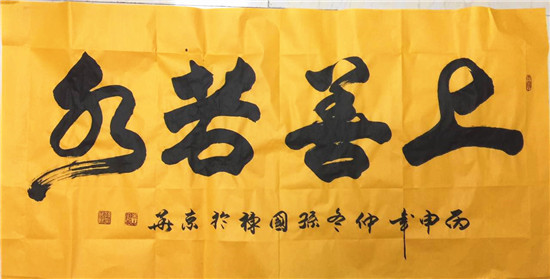 上善若水
丙申年仲冬孫國棟於京華